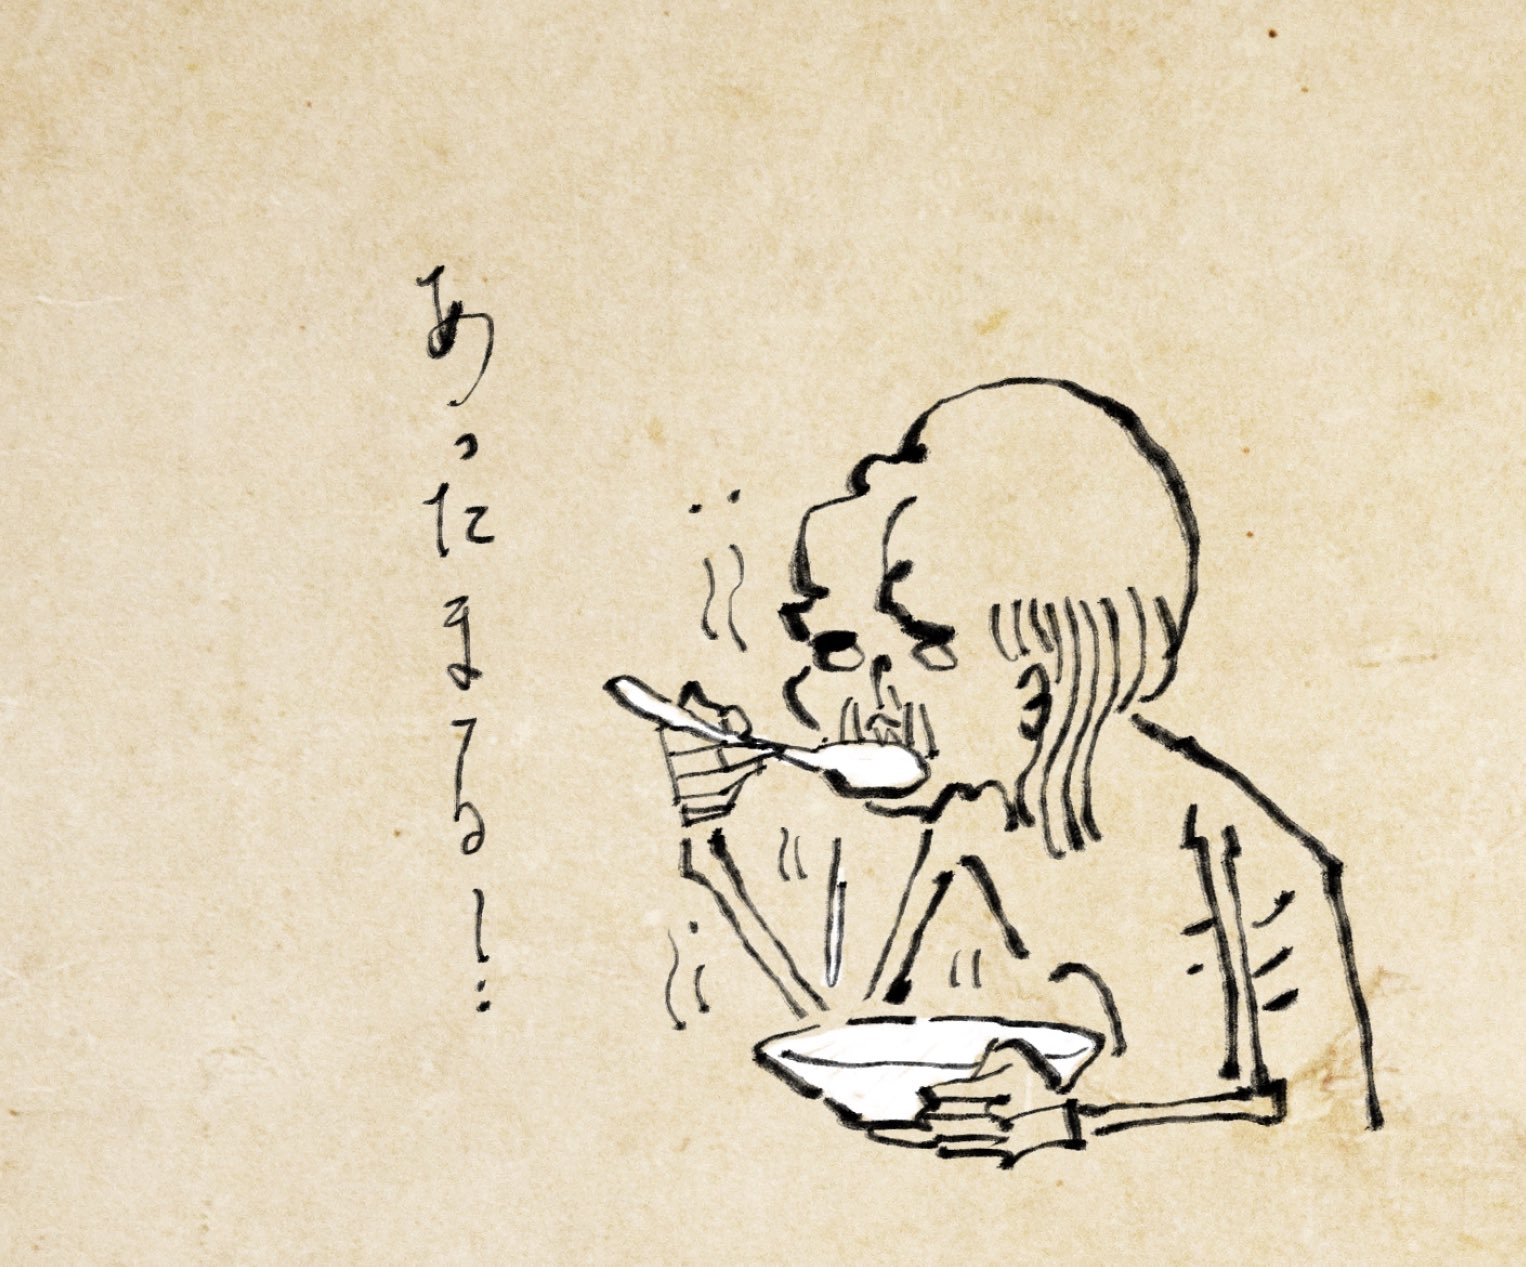 あったまてる!